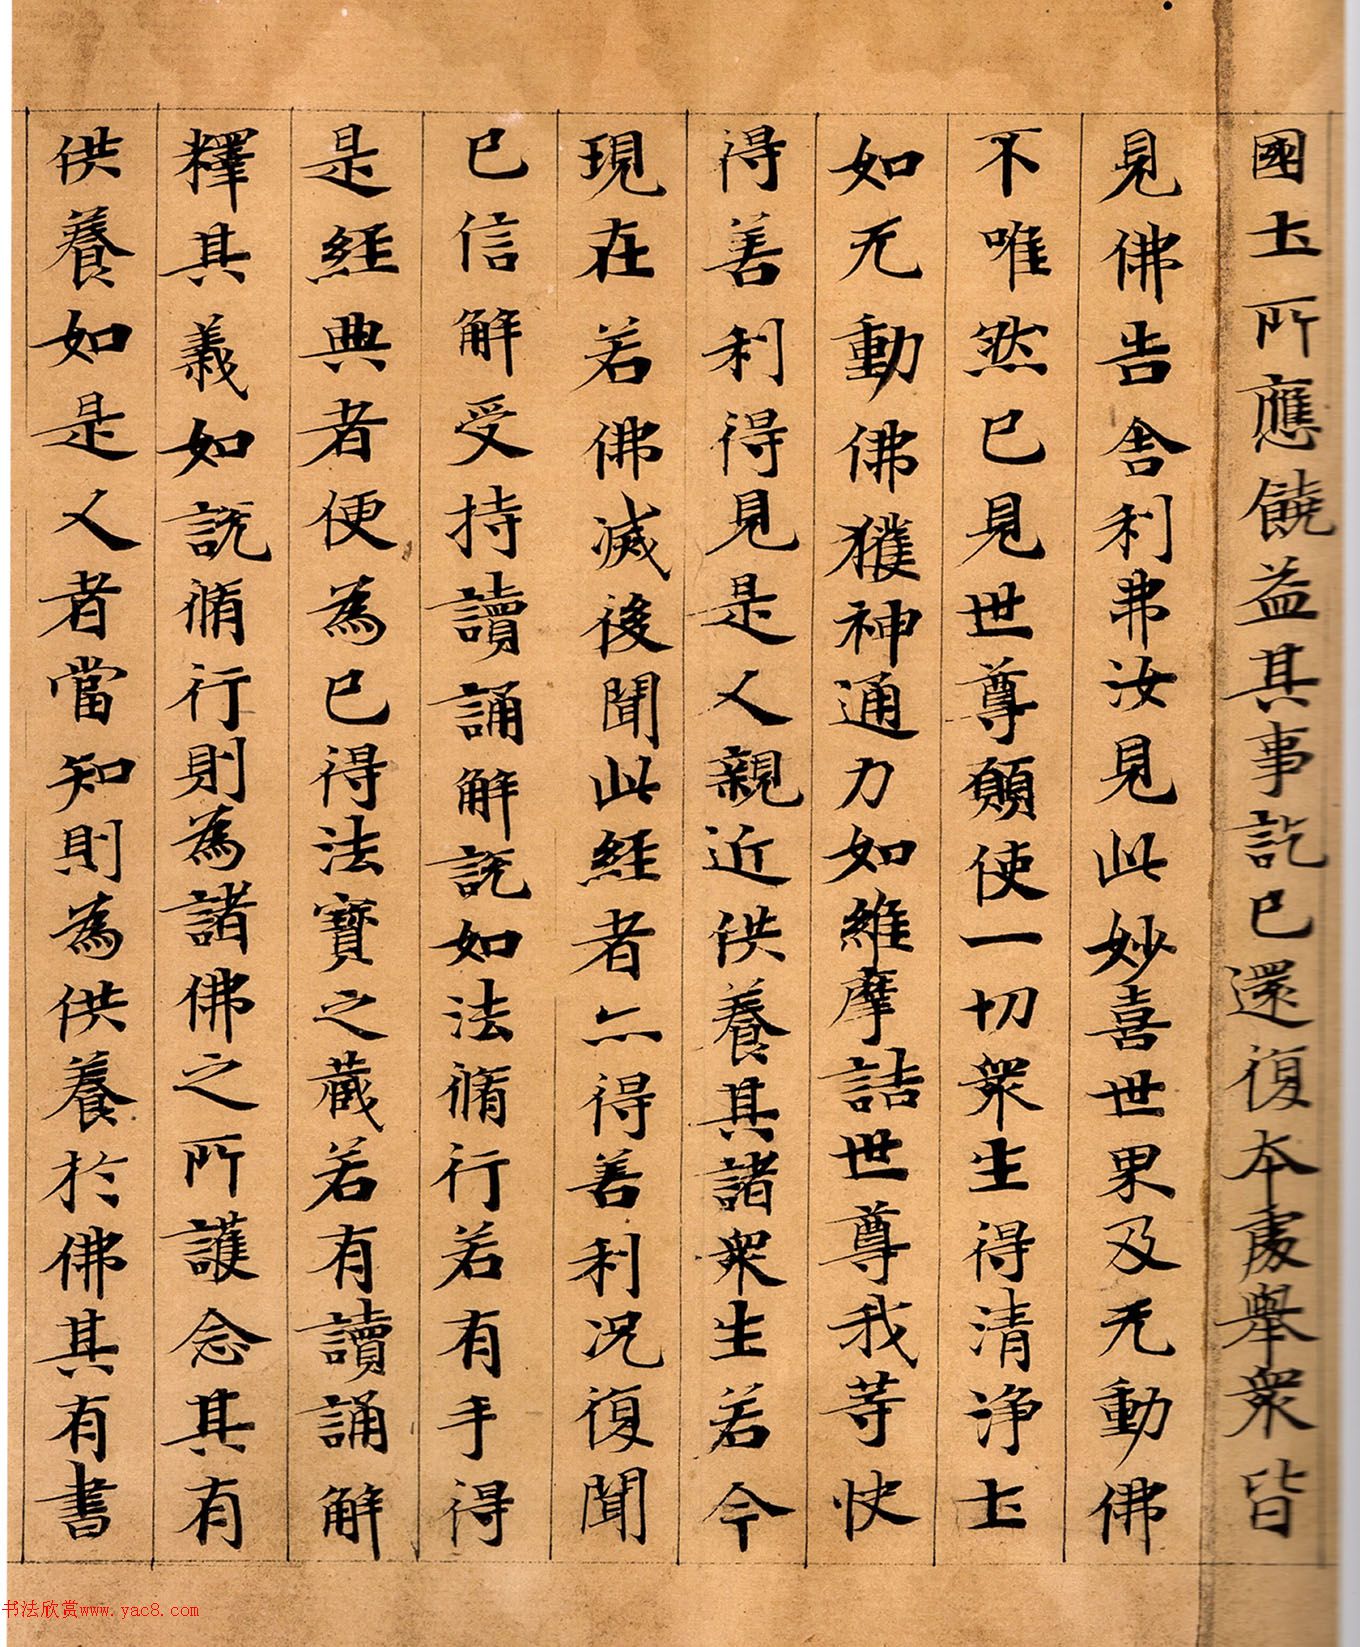 國土所應饒益其事訖已還復本處舉衆皆
見佛告舍利弗汝見此妙喜世界及无動佛
不唯然已見世尊願使一切衆生得清淨土
如无動佛獲神通力如維摩詰世尊我等快
得善利得見是人親近供養其諸衆生若今
現在若佛滅後聞此經者亦得善利況復聞
已信解受持讀誦解說如法脩行若有手得
是經典者便為已得法寶之藏若有讀誦解
釋其義如說脩行則為諸佛之所護念其有
供養如是人者當知則為供養於佛其有書
书法欣赏www.yac8.com